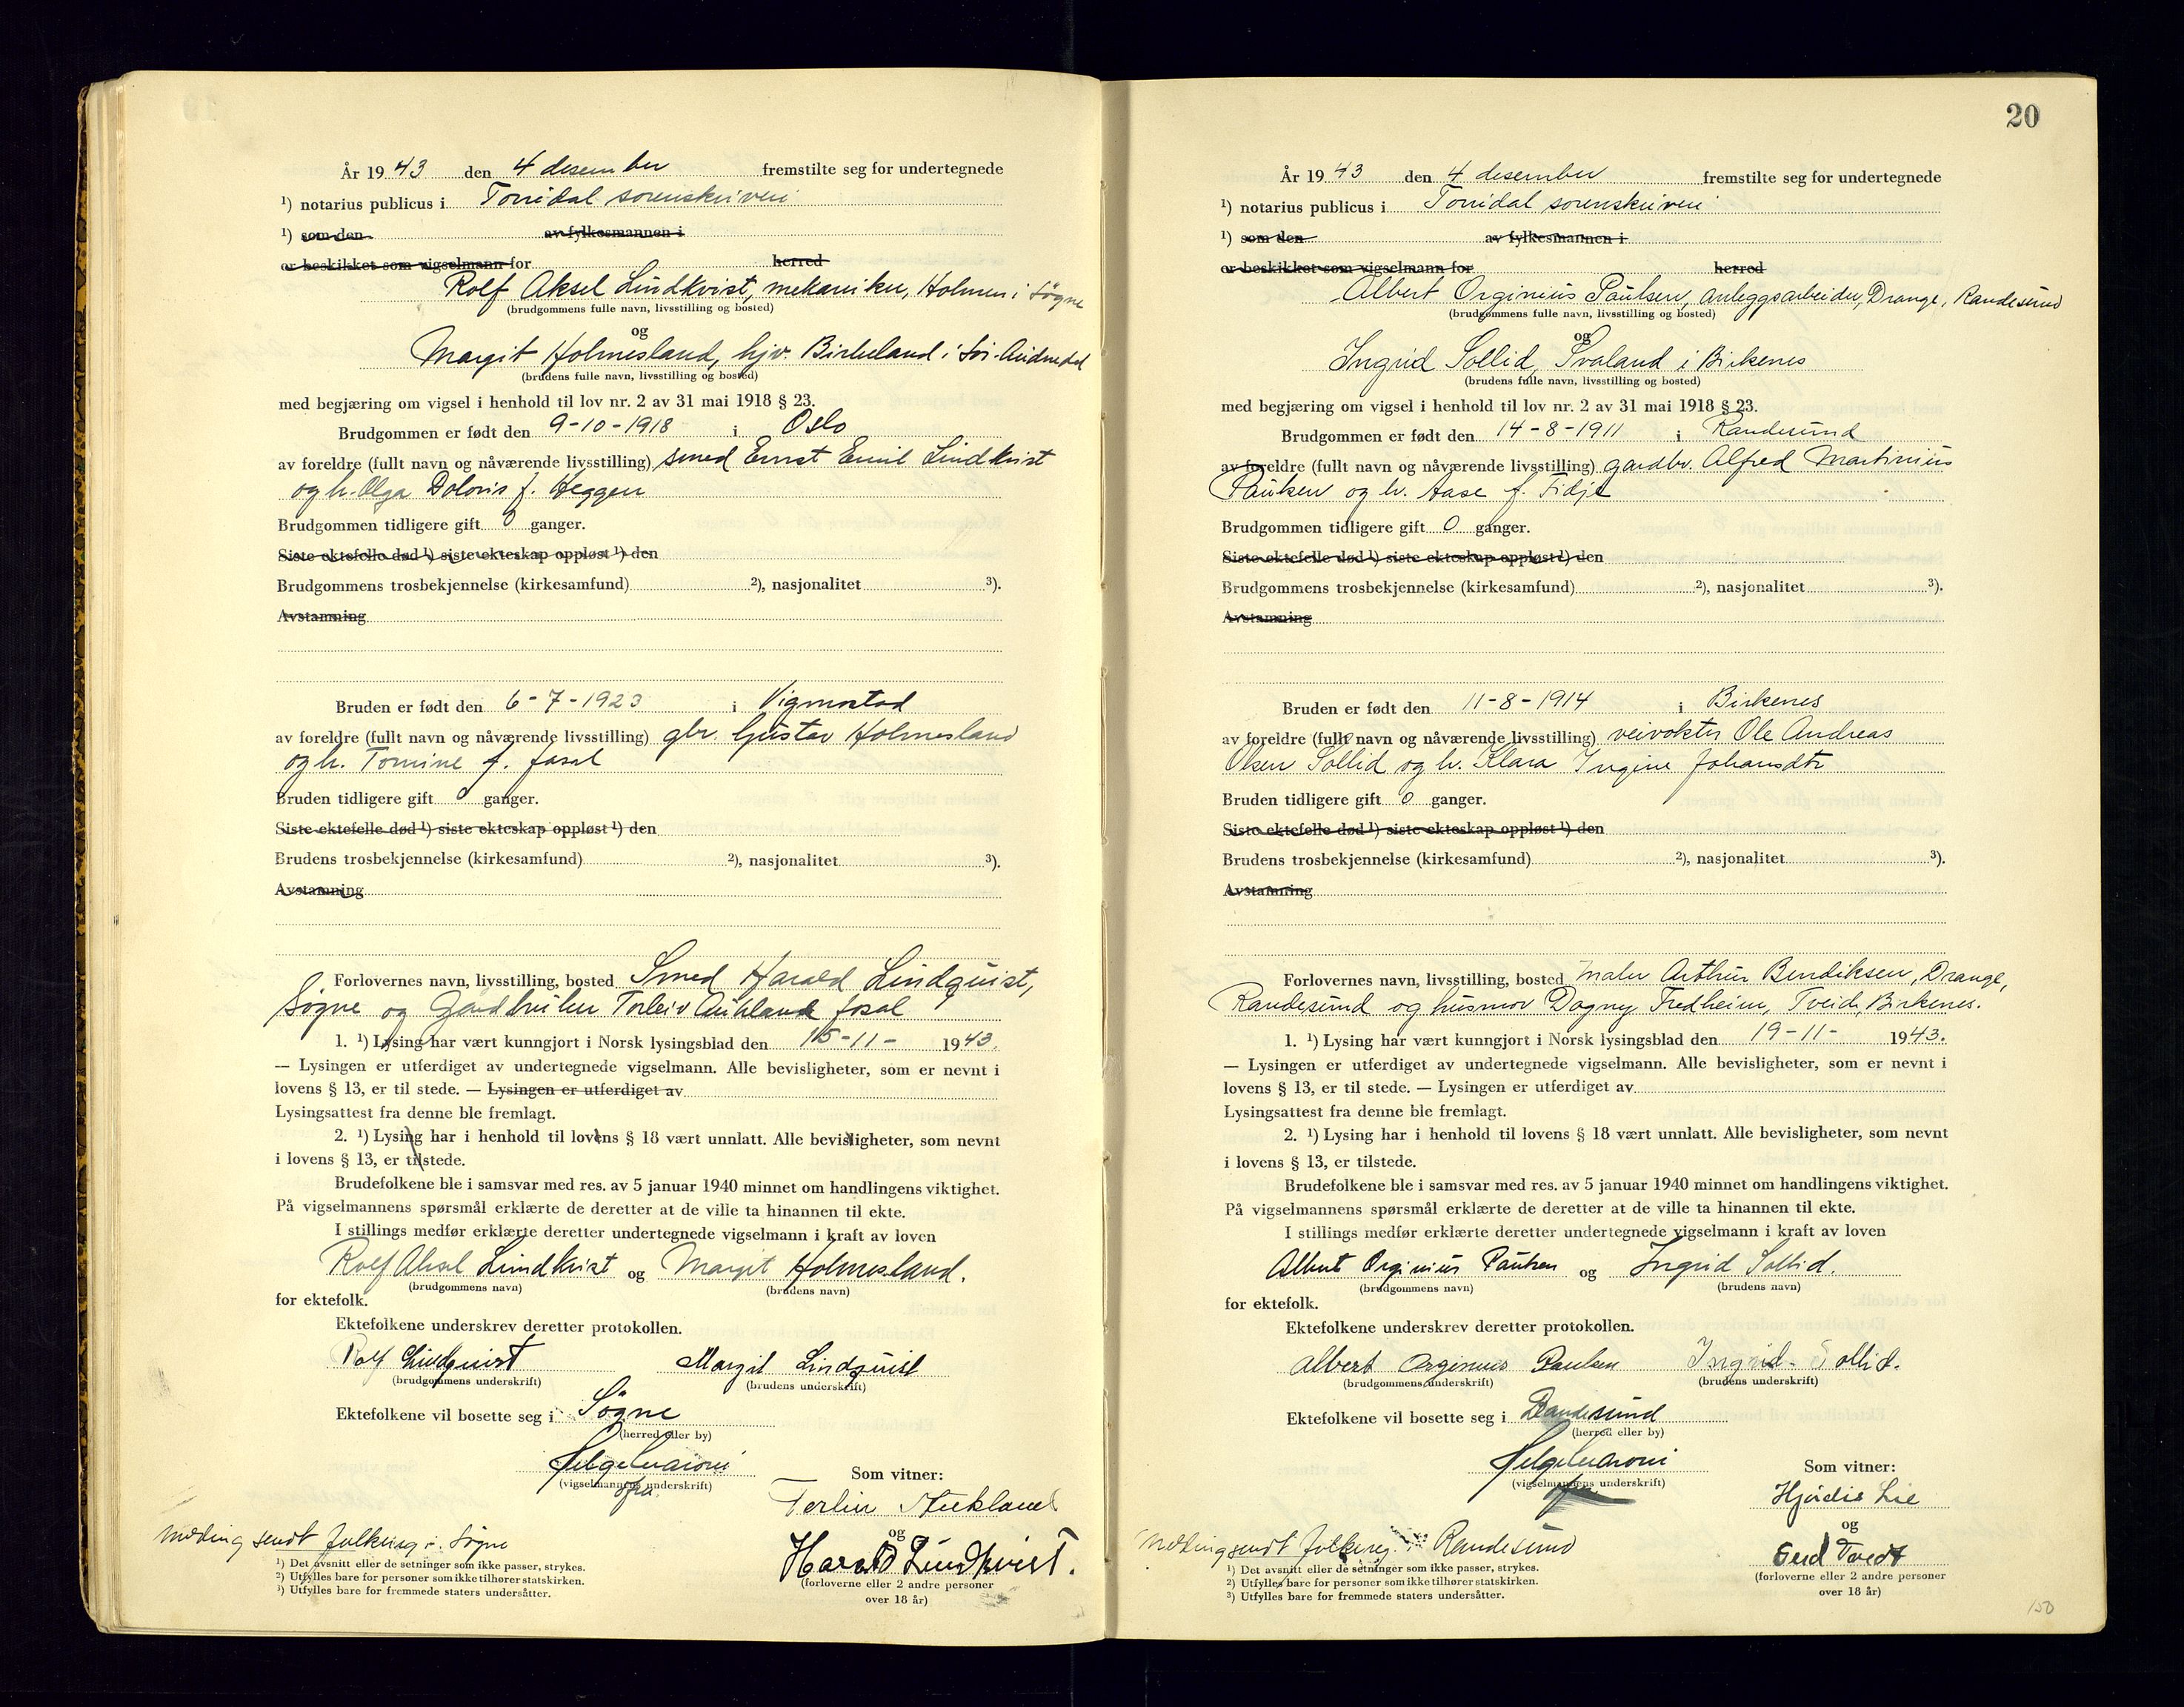 År 1943 den 4 desember fremstilte seg for undertegnede
¹) notarius publicus i Torridal sorenskriveri
¹) som den av fylkesmannen i
er beskikket som vigselmann for herred
Rolf Aksel Lindkvist, mekaniker, Holmen i Søgne
(brudgommens fulle navn, livsstilling og bosted)
og
Margit Holmesland, hjv. Birkeland i Sør-Audnedal
(brudens fulle navn, livsstilling og bosted)
med begjæring om vigsel i henhold til lov nr. 2 av 31 mai 1918 § 23.
Brudgommen er født den 9-10-1918 i Oslo
av foreldre (fullt navn og nåværende livsstilling) smed Ernst Emil Lindkvist
og h. Olga Doloris f. Heggen
Brudgommen tidligere gift 0 ganger.
Siste ektefelle død ¹) siste ekteskap oppløst ¹) den
Brudgommens trosbekjennelse (kirkesamfund) ²), nasjonalitet ³).
Avstamning
Bruden er født den 6-7-1923 i Vigmostad
av foreldre (fullt navn og nåværende livsstilling) gbr. Gustav Holmesland
og h. Tomine f. Fosal
Bruden tidligere gift 0 ganger.
Siste ektefelle død ¹) siste ekteskap oppløst ¹) den
Brudens trosbekjennelse (kirkesamfund) ²), nasjonalitet ³).
Avstamning
Forlovernes navn, livsstilling, bosted Smed Harald Lindquist,
Søgne og Gardbruker Torleiv Aukland Fosal
1. ¹) Lysing har vært kunngjort i Norsk lysingsblad den 15-11- 1943.
— Lysingen er utferdiget av undertegnede vigselmann. Alle bevisligheter, som er nevnt i
lovens § 13, er til stede. — Lysingen er utferdiget av
Lysingsattest fra denne ble fremlagt.
2. ¹) Lysing har i henhold til lovens § 18 vært unnlatt. Alle bevisligheter, som nevnt
i lovens § 13, er tilstede.
Brudefolkene ble i samsvar med res. av 5 januar 1940 minnet om handlingens viktighet.
På vigselmannens spørsmål erklærte de deretter at de ville ta hinannen til ekte.
I stillings medfør erklærte deretter undertegnede vigselmann i kraft av loven
Rolf Aksel Lindkvist og Margit Holmesland.
(brudgommens navn) (brudens navn)
for ektefolk.
Ektefolkene underskrev deretter protokollen.
Rolf Lindquist Margit Lindquist
(brudgommens underskrift) (brudens underskrift)
Ektefolkene vil bosette seg i Søgne
(herred eller by)
Som vitner:
(vigselmannens underskrift)
og
Harald Lundkvist.
Melding sendt folkereg. i Søgne
¹) Det avsnitt eller de setninger som ikke passer, strykes.
²) Utfylles bare for personer som ikke tilhører statskirken.
³) Utfylles bare for fremmede staters undersåtter.
(forloverne eller 2 andre personer
over 18 år)
20
År 1943 den 4 desember fremstilte seg for undertegnede
¹) notarius publicus i Torridal sorenskriveri
¹) som den av fylkesmannen i
er beskikket som vigselmann for herred
Albert Orginius Paulsen, Anleggsarbeider, Drange, Randesund
(brudgommens fulle navn, livsstilling og bosted)
og
Ingrid Sollid, Svaland i Birkenes
(brudens fulle navn, livsstilling og bosted)
med begjæring om vigsel i henhold til lov nr. 2 av 31 mai 1918 § 23.
Brudgommen er født den 14-8-1911 i Randesund
av foreldre (fullt navn og nåværende livsstilling) gardbr. Alfred Martinius
Paulsen og h. Aase f. Fidje
Brudgommen tidligere gift 0 ganger.
Siste ektefelle død ¹) siste ekteskap oppløst ¹) den
Brudgommens trosbekjennelse (kirkesamfund) ²), nasjonalitet ³).
Avstamning
Bruden er født den 11-8-1914 i Birkenes
av foreldre (fullt navn og nåværende livsstilling) veivokter Ole Andreas
Olsen Sollid og h. Klara Ingine Johansdtr
Bruden tidligere gift 0 ganger.
Siste ektefelle død ¹) siste ekteskap oppløst ¹) den
Brudens trosbekjennelse (kirkesamfund) ²), nasjonalitet ³).
Avstamning
Forlovernes navn, livsstilling, bosted maler Arthur Bendiksen, Drange,
Randesund og husmor Dagny Fredheim, Tveide, Birkenes.
1. ¹) Lysing har vært kunngjort i Norsk lysingsblad den 19-11- 1943.
— Lysingen er utferdiget av undertegnede vigselmann. Alle bevisligheter, som er nevnt i
lovens § 13, er til stede. — Lysingen er utferdiget av
Lysingsattest fra denne ble fremlagt.
2. ¹) Lysing har i henhold til lovens § 18 vært unnlatt. Alle bevisligheter, som nevnt
i lovens § 13, er tilstede.
Brudefolkene ble i samsvar med res. av 5 januar 1940 minnet om handlingens viktighet.
På vigselmannens spørsmål erklærte de deretter at de ville ta hinannen til ekte.
I stillings medfør erklærte deretter undertegnede vigselmann i kraft av loven
Albert Orginius Paulsen og Ingrid Sollid.
(brudgommens navn) (brudens navn)
for ektefolk.
Ektefolkene underskrev deretter protokollen.
Albert Orginius Paulsen Ingrid Sollid.
(brudgommens underskrift) (brudens underskrift)
Ektefolkene vil bosette seg i Randesund
(herred eller by)
Som vitner:
(vigselmannens underskrift)
Hjørdis Lie
og
Gud Tvedt
Melding sendt folkereg. i Randesund
¹) Det avsnitt eller de setninger som ikke passer, strykes.
²) Utfylles bare for personer som ikke tilhører statskirken.
³) Utfylles bare for fremmede staters undersåtter.
(forloverne eller 2 andre personer
over 18 år)
150